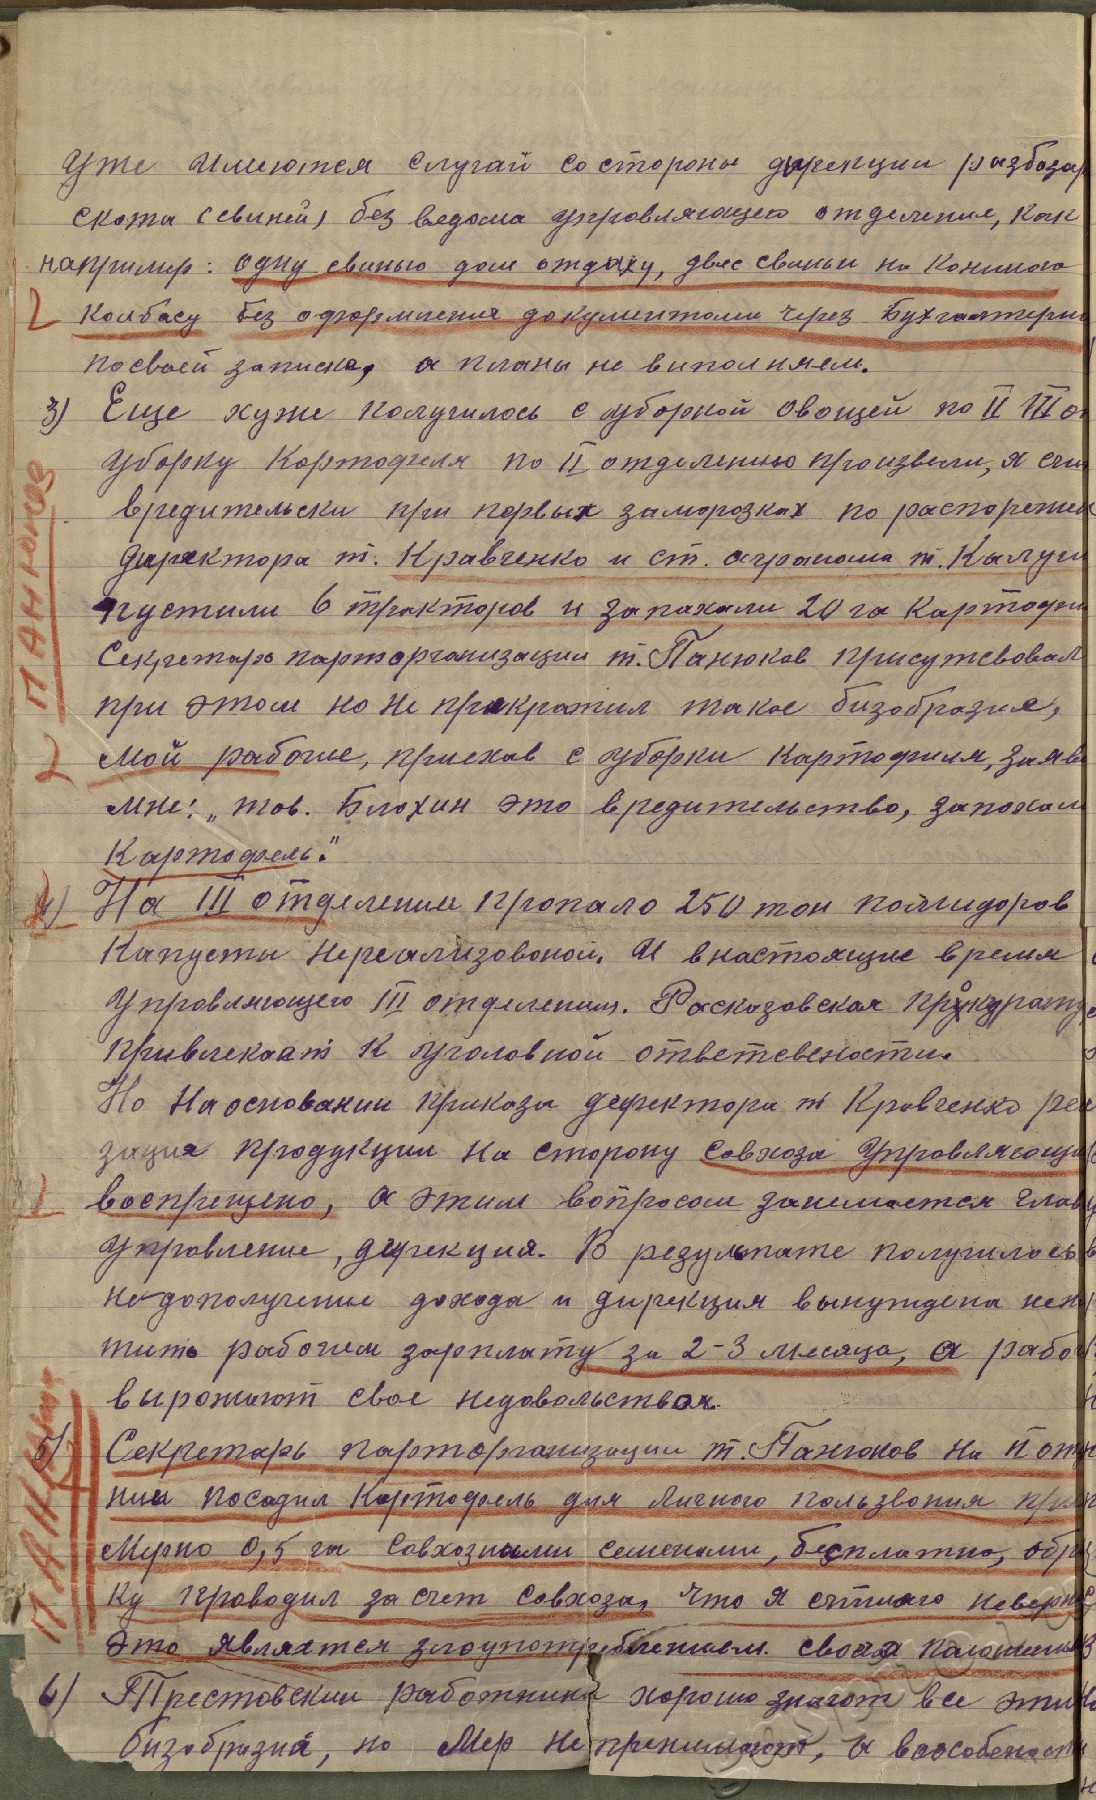 Уже имеются случай со стороны дирекции разбазар
скота (свиней) без ведома управляющего отделения, как
например: одну свинью дом отдыху, двес свиньи на
колбасу без оформления документоми через Бухгалтерию
посвоей записке, а планы не выполняем.
3) Еще хуже получилось с уборкой овощей по II III от
Уборку Картофеля по II отделению произвели, я счи
вредительски при первых заморозках по распоряжен
директора т. Кравченко и ст. агранома т. Калуги
пустили 6 тракторов и запахали 20 га Картофи
Секретарь парторганизации т. Панюков присутевовал
при этом но не прикратил такое бизобразие,
Мой рабочие, приехав с уборки картофиля, заяви
мне: „тов. Блохин это вредительство, запохали
Картофель."
ПАНЮКОВ
4) На III отделении пропало 250 тон помидоров
Капусты нереализовоной. И внастоящие время
Управляющего III отделения. Расказовская прокурату
привлекаат к уголовной ответсвености.
Но на основании приказа деректора т Кравченко реа
зация продукции на сторону совхоза Управляющи
воспрещено, а этим вопросом занемается глав
управление, дирекция. В результате получилось
недополучение дохода и дирекция вынуждена неп
тить рабочем зарплату за 2-3 месяца, а рабоч
выражают свое недовольствая.
5) Секретарь парторганизации т. Панюков на II отд
нии посадил Картофель для личного пользвония при
мерно 0,5 га совхозными семенами, бесплатно, обра
ку проводил за счет совхоза, что я считаю неверно
это является злоупотреблением. своего положения
ПАНЮКОВ
6) Трестовский работники хорошо знают все эти
бизобразия, но мер непренимают, а воособености